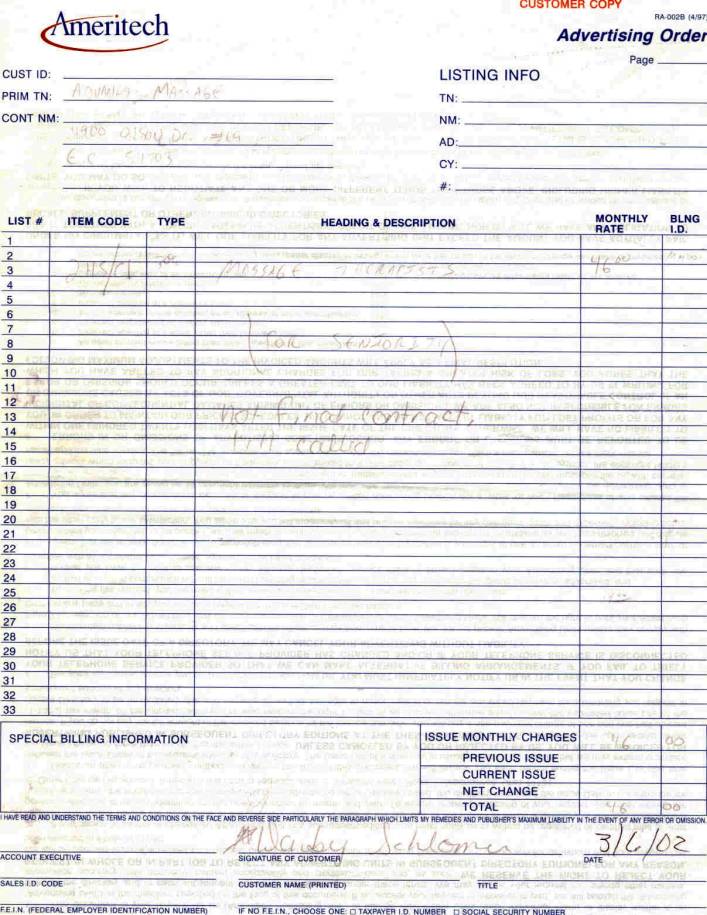 CUSTOMER COPY
RA-002B (4/97)
Ameritech
Advertising Order
Page
CUST ID:
LISTING INFO
PRIM TN: MASSAGE
TN:
CONT NM:
NM:
4900 Dr. #
AD:
E.C.
CY:
#:
LIST # ITEM CODE TYPE HEADING & DESCRIPTION MONTHLY RATE BLNG I.D.
1
2
3 MASSAGE THERAPISTS 46 00
4
5
6
7
8 (FOR SENIORITY)
9
10
11
12
13 not final contract,
14
15 till called
16
17
18
19
20
21
22
23
24
25
26
27
28
29
30
31
32
33
SPECIAL BILLING INFORMATION
ISSUE MONTHLY CHARGES 46 00
PREVIOUS ISSUE
CURRENT ISSUE
NET CHANGE
TOTAL 46 00
I HAVE READ AND UNDERSTAND THE TERMS AND CONDITIONS ON THE FACE AND REVERSE SIDE PARTICULARLY THE PARAGRAPH WHICH LIMITS MY REMEDIES AND PUBLISHER'S MAXIMUM LIABILITY IN THE EVENT OF ANY ERROR OR OMISSION.
Schlomer 3/6/02
ACCOUNT EXECUTIVE SIGNATURE OF CUSTOMER DATE
SALES I.D. CODE CUSTOMER NAME (PRINTED) TITLE
F.E.I.N. (FEDERAL EMPLOYER IDENTIFICATION NUMBER) IF NO F.E.I.N., CHOOSE ONE: □ TAXPAYER I.D. NUMBER □ SOCIAL SECURITY NUMBER